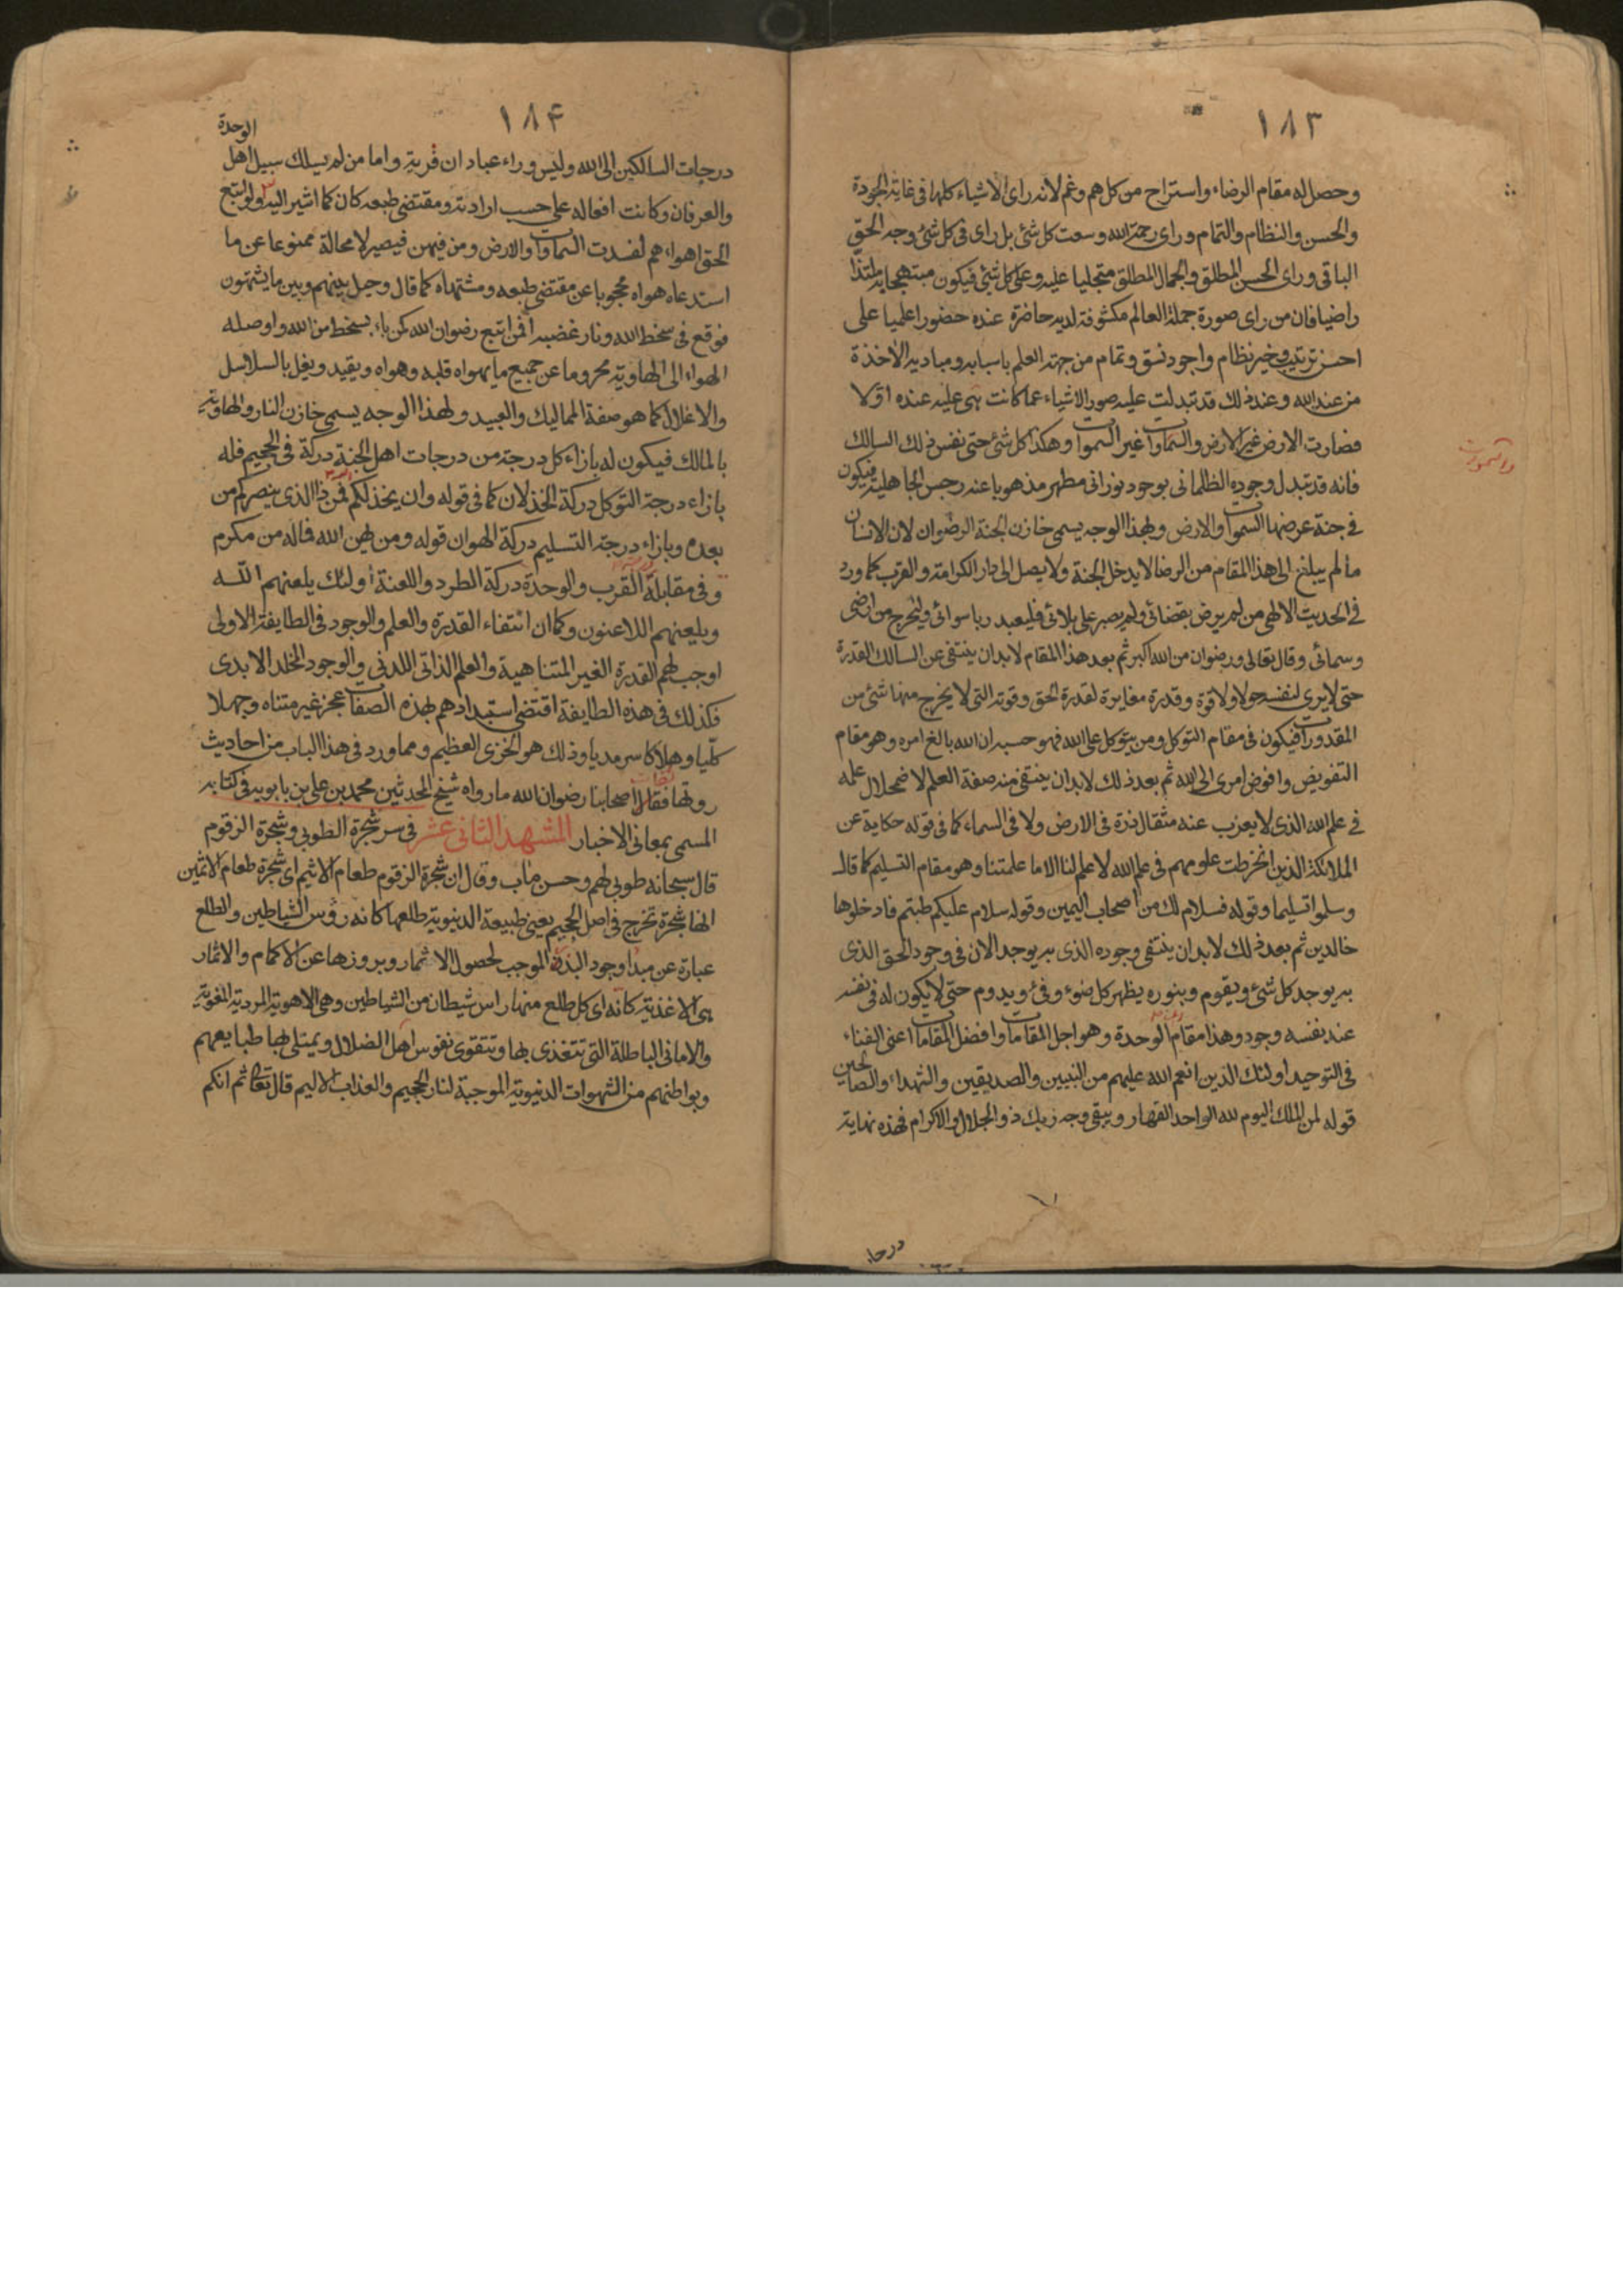 ١٨٣
وحصل له مقام الرضاء واستراح من كل هم وغم لانه راى الاشياء كلها فى غاية الجودة
والحسن والنظام والتمام وراى رحمة الله وسعت كل شئ بل راى فى كل شئ وجه الحق
الباقى وراى الحسن المطلق والجمال المطلق متجليا عليه وعلى كل شئ فيكون مبتهجا به ملتذا
راضيا فان من راى صورة جملة العالم مكشوفة لديه حاضرة عنده حضورا علميا على
احسن ترتيب وخير نظام واجود نسق وتمام من جهة العلم باسبابه ومباديه الاخذة
من عند الله وعند ذلك قد تبدلت عليه صور الاشياء عما كانت هى عليه عنده اولا
فصارت الارض غير الارض والسماوات غير السموات وهكذا كل شئ حتى نفس ذلك السالك
والسموات
فانه قد تبدل وجوده الظلمانى بوجود نورانى مطهر مذهوبا عنه رجس الجاهلية فيكون
فى جنة عرضها السموات والارض وبهذا الوجه يسمى خازن الجنة الرضوان لان الانسان
ما لم يبلغ الى هذا المقام من الرضا لا يدخل الجنة ولا يصل الى دار الكرامة والقرب كما ورد
فى الحديث الالهى من لم يرض بقضائى ولم يصبر على بلائى فليعبد ربا سوائى وليخرج من ارضى
وسمائى وقال تعالى ورضوان من الله اكبر ثم بعد هذا المقام لابد ان ينتفى عن السالك القدرة
حتى لا يرى لنفسه حولا ولا قوة وقدرة مغايرة لقدرة الحق وقوته التى لا يخرج منها شئ من
المقدورات فيكون فى مقام التوكل ومن يتوكل على الله فهو حسبه ان الله بالغ امره وهو مقام
التفويض وافوض امرى الى الله ثم بعد ذلك لابد ان ينتفى منه صفة العلم لاضمحلال علمه
فى علم الله الذى لا يعزب عنه مثقال ذرة فى الارض ولا فى السماء كما فى قوله حكاية عن
الملائكة الذين انخرطت علومهم فى علم الله لا علم لنا الا ما علمتنا وهو مقام التسليم كما قال
وسلموا تسليما وقوله فسلام لك من اصحاب اليمين وقوله سلام عليكم طبتم فادخلوها
خالدين ثم بعد ذلك لابد ان ينتفى وجوده الذى به يوجد الان فى وجود الحق الذى
به يوجد كل شئ ويقوم وبنوره يظهر كل ضوء وفئ ويدوم حتى لا يكون له فى نفسه
عند نفسه وجود وهذا مقام الوحدة وهو اجل المقامات وافضل المقامات اعنى الفناء
فى التوحيد اولئك الذين انعم الله عليهم من النبيين والصديقين والشهداء والصالحين
قوله لمن الملك اليوم لله الواحد القهار ويبقى وجه ربك ذو الجلال والاكرام فهذه نهاية
درجات
١٨۴
درجات السالكين الى الله وليس وراء عبادان قرية واما من لم يسلك سبيل اهل الوحدة
والعرفان وكانت افعاله على حسب ارادته ومقتضى طبعه كان كما اشير اليه ولو اتبع
الحق اهواءهم لفسدت السماوات والارض ومن فيهن فيصير لا محالة ممنوعا عن ما
استدعاه هواه محجوبا عن مقتضى طبعه ومشتهاه كما قال وحيل بينهم وبين ما يشتهون
فوقع فى سخط الله ونار غضبه افمن اتبع رضوان الله كمن باء بسخط من الله واوصله
الهواء الى الهاوية محروما عن جميع ما يهواه قلبه وهواه ويقيد ويغل بالسلاسل
والاغلال كما هو صفة المماليك والعبيد ولهذا الوجه يسمى خازن النار والهاوية
بالمالك فيكون له بازاء كل درجة من درجات اهل الجنة دركة فى الجحيم فله
بازاء درجة التوكل دركة الخذلان كما فى قوله وان يخذلكم فمن ذا الذى ينصركم من
بعده وبازاء درجة التسليم دركة الهوان قوله ومن يهن الله فما له من مكرم
وفى مقابلة القرب والوحدة دركة الطرد واللعنة اولئك يلعنهم الله
ويلعنهم اللاعنون وكما ان انتفاء القدرة والعلم والوجود فى الطايفة الاولى
اوجب لهم القدرة الغير المتناهية والعلم الذاتى اللدنى والوجود الخلد الابدى
فكذلك فى هذه الطايفة اقتضى استبدادهم بهذه الصفات عجز غير متناه وجهلا
كليا وهلاكا سرمديا وذلك هو الخزى العظيم ومما ورد فى هذا الباب من احاديث
روتها اصحابنا رضوان الله ما رواه شيخ المحدثين محمد بن على بن بابويه فى كتابه
المسمى بمعانى الاخبار المشهد الثانى عشر فى سر شجرة الطوبى وشجرة الزقوم
قال سبحانه طوبى لهم وحسن ماب وقال ان شجرة الزقوم طعام الاثيم اى شجرة طعام الاثمين
انها شجرة تخرج فى اصل الجحيم يعنى طبيعة الدنيوية طلعها كانه رؤس الشياطين والطلع
عبارة عن مبدا وجود البذر الموجب لحصول الاثمار وبروزها عن الاكمام والاثمار
هى الاغذية كانه اى كل طلع منها راس شيطان من الشياطين وهى الاهوية المردية المغوية
والامانى الباطلة التى تتغذى بها وتتقوى نفوس اهل الضلال ويمتلى بها طبايعهم
وبواطنهم من الشهوات الدنيوية الموجبة لنار الجحيم والعذاب الاليم قال تعالى ثم انكم